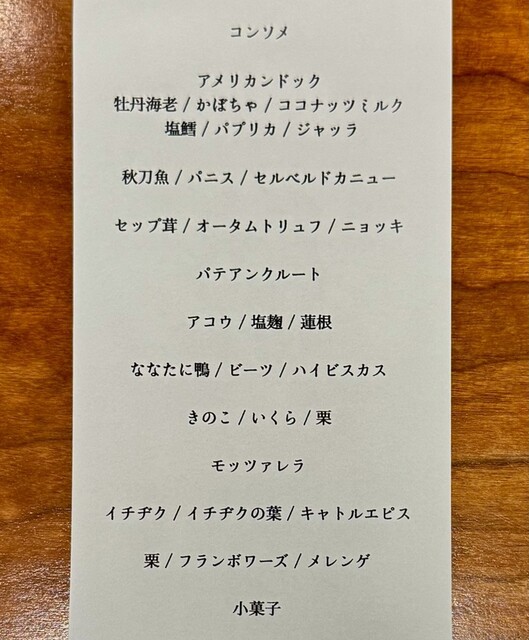 コンソメ
アメリカンドック
牡丹海老 / かぼちゃ / ココナッツミルク
塩鱈 / パプリカ / ジャッラ
秋刀魚 / パニス / セルベルドカニュー
セップ茸 / オータムトリュフ / ニョッキ
パテアンクルート
アコウ / 塩麹 / 蓮根
ななたに鴨 / ビーツ / ハイビスカス
きのこ / いくら / 栗
モッツァレラ
イチヂク / イチヂクの葉 / キャトルエピス
栗 / フランボワーズ / メレンゲ
小菓子